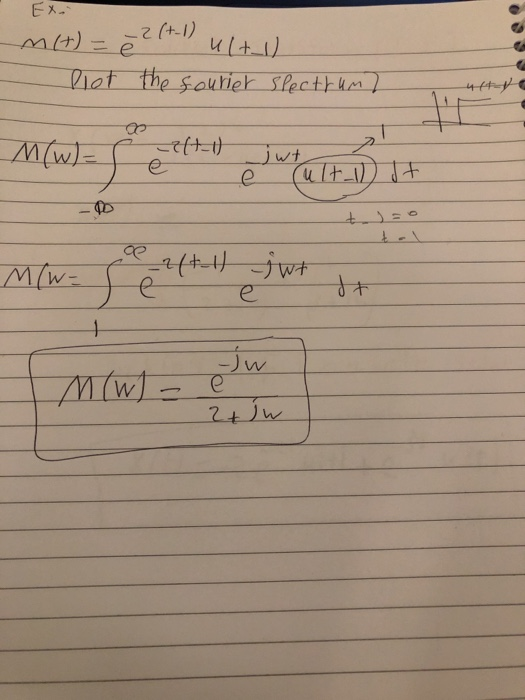 Ex:-
m(t) = e^-2(t-1) u(t-1)
Plot the fourier spectrum?
u(t-1)
1
M(w) = ∫_-∞^∞ e^-2(t-1) e^-jwt u(t-1) dt
t-1=0
t-1
M(w= ∫_1^∞ e^-2(t-1) e^-jwt dt
M(w) = e^-jw / 2+jw